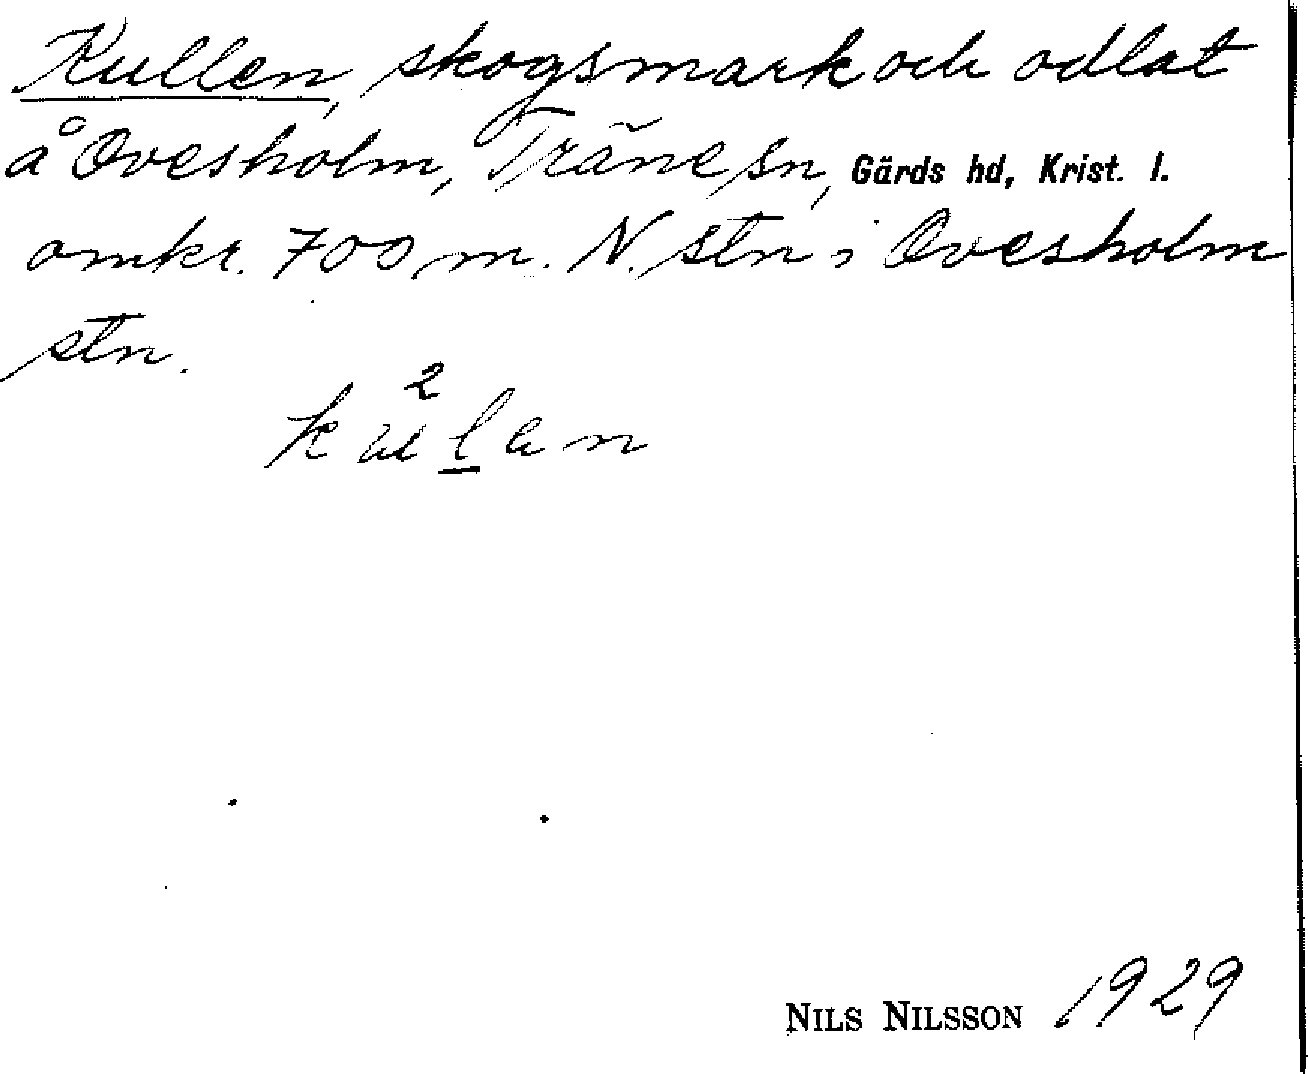 Kullen, skogsmark och odlat
å Ovesholm, Träne sn, Gärds hd, Krist. l.
omkr. 700 m. N. stn i Ovesholm
stn.
2
kulan
NILS NILSSON 1929